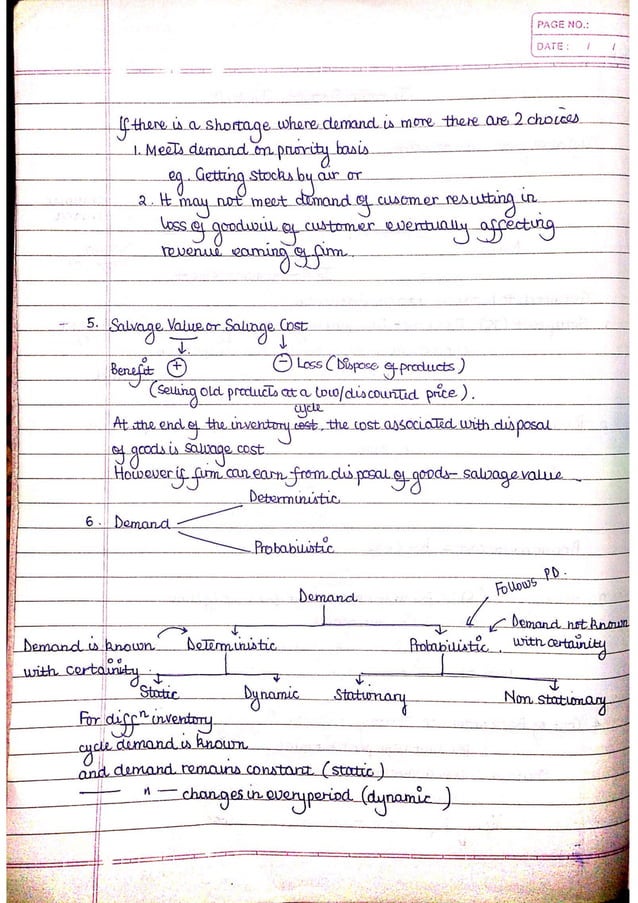 PAGE NO.:
DATE: / /
If there is a shortage where demand is more there are 2 choices
1. Meets demand on priority basis
eg. Getting stocks by air or
2. It may not meet demand of cusomer resulting in
loss of goodwill of customer eventually affecting
revenue earning of firm.
- 5. Salvage Value or Salvage Cost
Benefit + - Loss (Dispose of products)
(Selling old products at a low/discounted price).
cycle
At the end of the inventory cost, the cost associated with disposal
of goods is salvage cost
However if firm can earn from disposal of goods - salvage value.
Deterministic
6. Demand
Probabilistic
Follows PD.
Demand
Demand not known
Demand is known Deterministic Probabilistic. with certainity
with certainity.
Static Dynamic Stationary Non stationary
For diffn inventory
cycle demand is known
and demand remains constant (static)
— " — changes in every period (dynamic)